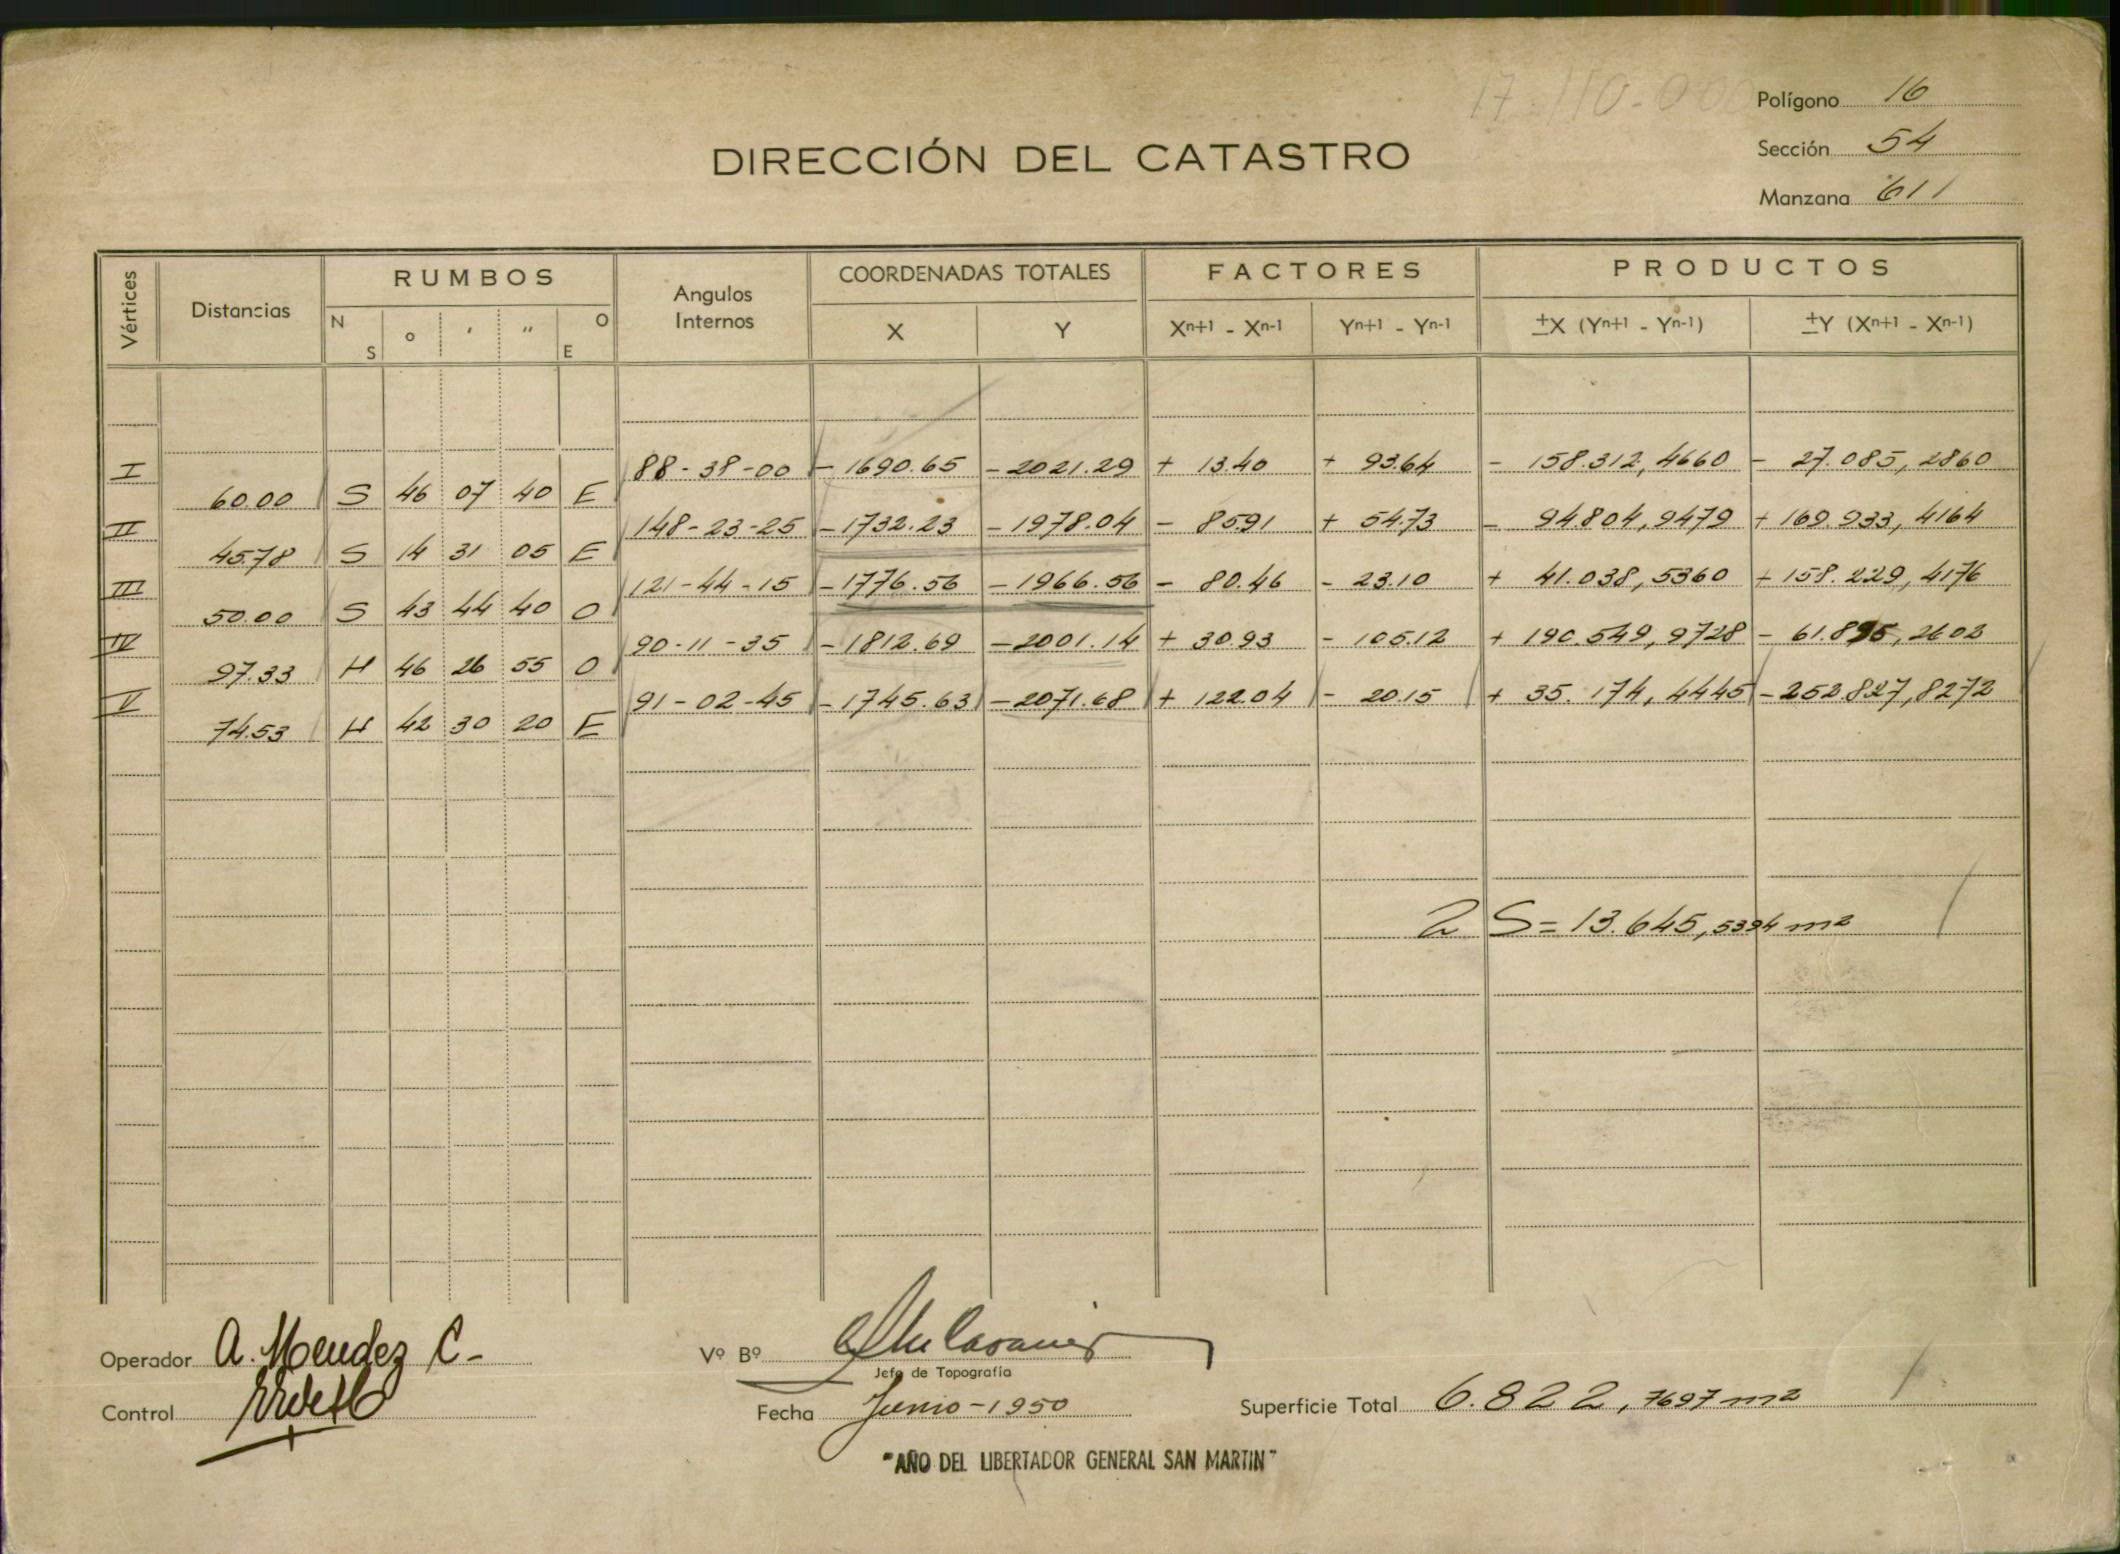 17.110-000
Polígono 16
DIRECCIÓN DEL CATASTRO
Sección 54
Manzana 611
Vértices Distancias RUMBOS Angulos Internos COORDENADAS TOTALES FACTORES PRODUCTOS
N S ° ' " O E X Y Xn+1 - Xn-1 Yn+1 - Yn-1 ±X (Yn+1 - Yn-1) ±Y (Xn+1 - Xn-1)
I 88-38-00 -1690.65 -2021.29 + 13.40 + 93.64 - 158.312,4660 - 27.085,2860
60.00 S 46 07 40 E
II 148-23-25 -1732.23 -1978.04 - 85.91 + 54.73 - 94.804,9479 + 169.933,4164
45.78 S 14 31 05 E
III 121-44-15 -1776.56 -1966.56 - 80.46 - 23.10 + 41.038,5360 + 158.229,4176
50.00 S 43 44 40 O
IV 90-11-35 -1812.69 -2001.14 + 30.93 - 105.12 + 190.549,9728 - 61.895,2602
97.33 N 46 26 55 O
V 91-02-45 -1745.63 -2071.68 + 122.04 - 20.15 + 35.174,4445 - 252.827,8272
74.53 N 42 30 20 E
2 S = 13.645,5394 m²
Operador A. Mendez C.
Vº Bº
Jefe de Topografía
Control
Fecha Junio-1950
Superficie Total 6.822,7697 m²
"AÑO DEL LIBERTADOR GENERAL SAN MARTIN"